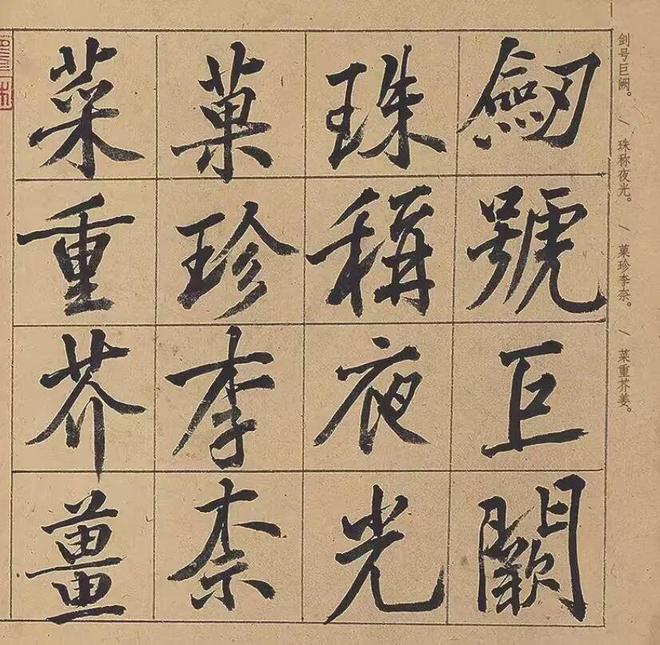 剑号巨阙。 / 珠称夜光。 / 菓珍李奈。 / 菜重芥姜。
劒號巨闕
珠稱夜光
菓珍李柰
菜重芥薑